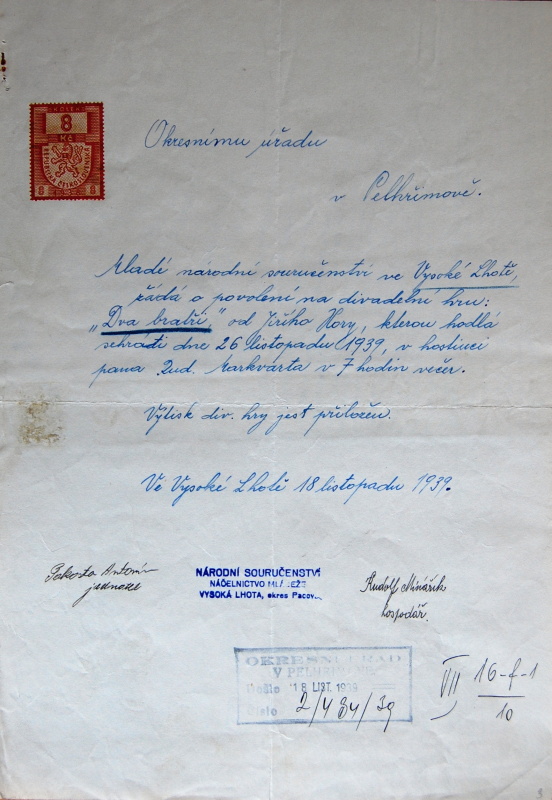 KOLEK
8
Kč
REPUBLIKA ČESKOSLOVENSKÁ
8 8
Okresnímu úřadu
v Pelhřimově.
Mladé národní souručenství ve Vysoké Lhotě,
žádá o povolení na divadelní hru:
„Dva bratři" od Jiřího Hory, kterou hodlá
sehrati dne 26 listopadu 1939, v hostinci
pana Lud. Markvarta v 7 hodin večer.
Výtisk div. hry jest přiložen.
Ve Vysoké Lhotě 18 listopadu 1939.
Antonín
jednatel
NÁRODNÍ SOURUČENSTVÍ
NÁČELNICTVO MLÁDEŽE
VYSOKÁ LHOTA, okres Pacov
Rudolf Minářík
hospodář.
OKRESNÍ ÚŘAD
V PELHŘIMOVĚ
Došlo 18 LIST. 1939
Číslo
VII 16-f-1
10